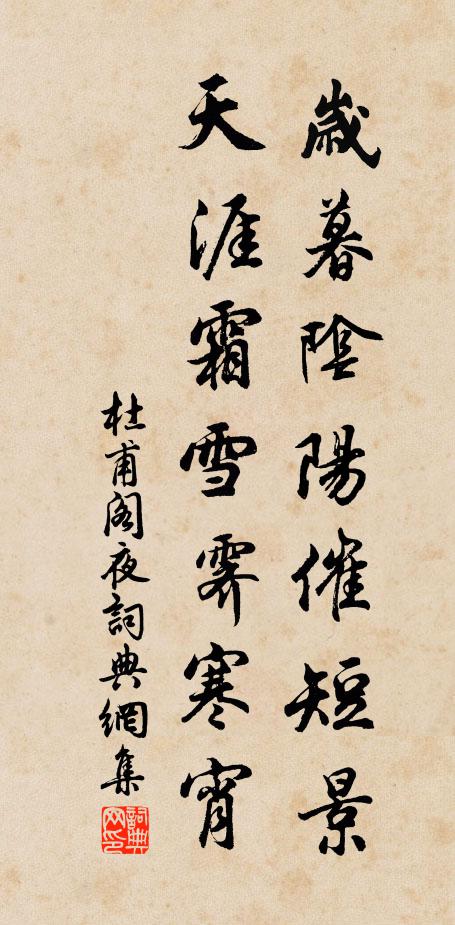 歲暮陰陽催短景
天涯霜雪霽寒宵
杜甫閣夜詞典網集
詞典网印